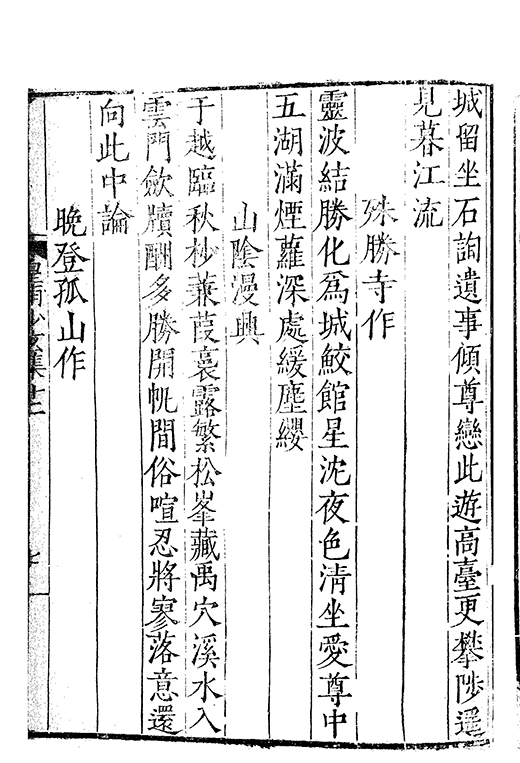 城留坐石詢遺事傾尊戀此遊高臺更攀陟遥
見暮江流
殊勝寺作
靈波結勝化爲城鮫館星沈夜色淸坐愛尊中
五湖滿煙蘿深處緩塵纓
山陰漫興
于越臨秋杪蒹葭裛露繁松峯藏禹穴溪水入
雲門歛牘酬多勝開帆間俗喧忍將寥落意還
向此中論
晚登孤山作
皇甫少玄集